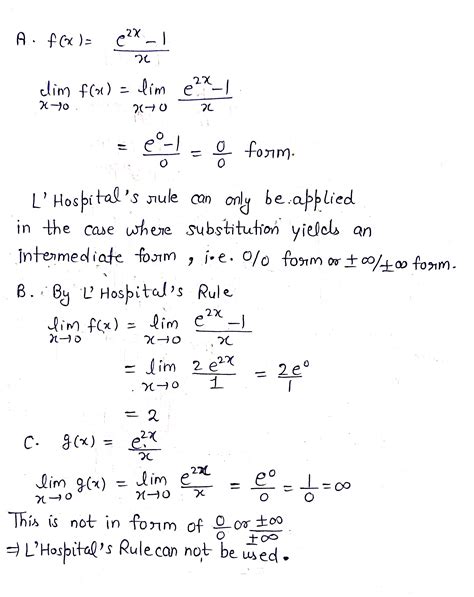 A. f(x) = (e^{2x} - 1)/x
lim_{x→0} f(x) = lim_{x→0} (e^{2x} - 1)/x
= (e^0 - 1)/0 = 0/0 form.
L'Hospital's rule can only be applied
in the case where substitution yields an
Intermediate form, i.e. 0/0 form or ±∞/±∞ form.
B. By L'Hospital's Rule
lim_{x→0} f(x) = lim_{x→0} (e^{2x} - 1)/x
= lim_{x→0} 2e^{2x}/1 = 2e^0/1
= 2
C. g(x) = e^{2x}/x
lim_{x→0} g(x) = lim_{x→0} e^{2x}/x = e^0/0 = 1/0 = ∞
This is not in form of 0/0 or ±∞/±∞
⇒ L'Hospital's Rule can not be used.